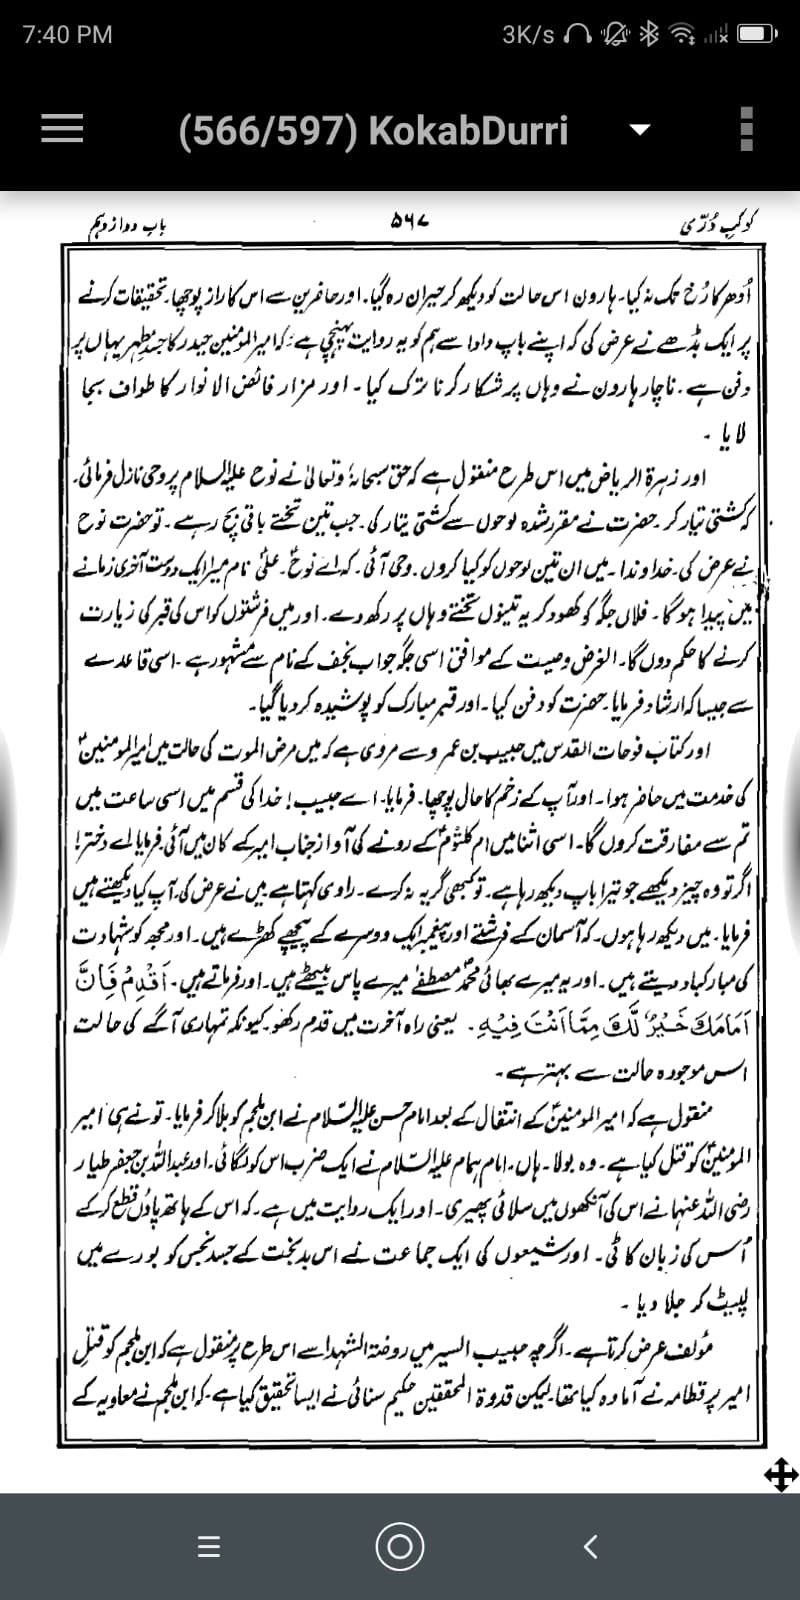 7:40 PM 3K/s
(566/597) KokabDurri
کوکبِ دُرّی ۵۶۷ باب دوازدہم
اُدھر کا رُخ تک نہ کیا۔ ہارون اس حالت کو دیکھ کر حیران رہ گیا۔ اور حاضرین سے اس کا راز پوچھا۔ تحقیقات کرنے
پر ایک بڈھے نے عرض کی کہ اپنے باپ دادا سے ہم کو یہ روایت پہنچی ہے؛ کہ امیر المومنین حیدر کا جسدِ مطہر یہاں پر
دفن ہے۔ ناچار ہارون نے وہاں پر شکار کرنا ترک کیا۔ اور مزار فائض الانوار کا طواف بجا
لایا۔
اور زہرۃ الریاض میں اس طرح منقول ہے کہ حق سبحانہٗ وتعالیٰ نے نوح علیہ السلام پر وحی نازل فرمائی۔
کہ کشتی تیار کر۔ حضرت نے مقرر شدہ لوحوں سے کشتی تیار کی۔ جب تین تختے باقی بچ رہے۔ تو حضرت نوح
نے عرض کی۔ خداوندا۔ میں ان تین لوحوں کو کیا کروں۔ وحی آئی۔ کہ اے نوحؑ۔ علیؑ نام میرا ایک دوست آخری زمانے
میں پیدا ہوگا۔ فلاں جگہ کو کھود کر یہ تینوں تختے وہاں پر رکھ دے۔ اور میں فرشتوں کو اس کی قبر کی زیارت
کرنے کا حکم دوں گا۔ الغرض وصیت کے موافق اسی جگہ جو اب نجف کے نام سے مشہور ہے۔ اسی قاعدے
سے جیسا کہ ارشاد فرمایا۔ حضرت کو دفن کیا۔ اور قبر مبارک کو پوشیدہ کر دیا گیا۔
اور کتاب فوحات القدس میں حبیب بن عمرو سے مروی ہے کہ میں مرض الموت کی حالت میں امیر المومنینؑ
کی خدمت میں حاضر ہوا۔ اور آپ کے زخم کا حال پوچھا۔ فرمایا۔ اے حبیب! خدا کی قسم میں اسی ساعت میں
تم سے مفارقت کروں گا۔ اسی اثنا میں ام کلثومؑ کے رونے کی آواز جناب امیر کے کان میں آئی۔ فرمایا اے دختر!
اگر تو وہ چیز دیکھے جو تیرا باپ دیکھ رہا ہے۔ تو کبھی گریہ نہ کرے۔ راوی کہتا ہے میں نے عرض کی۔ آپ کیا دیکھتے ہیں
فرمایا۔ میں دیکھ رہا ہوں۔ کہ آسمان کے فرشتے اور پیغمبر ایک دوسرے کے پیچھے کھڑے ہیں۔ اور مجھ کو شہادت
کی مبارکباد دیتے ہیں۔ اور یہ میرے بھائی محمد مصطفےٰ میرے پاس بیٹھے ہیں۔ اور فرماتے ہیں۔ اَقْدِمْ فَاِنَّ
اَمَامَكَ خَيْرٌ لَّكَ مِمَّا اَنْتَ فِيْهِ۔ یعنی راہ آخرت میں قدم رکھو۔ کیونکہ تمہاری آگے کی حالت
اس موجودہ حالت سے بہتر ہے۔
منقول ہے کہ امیر المومنینؑ کے انتقال کے بعد امام حسن علیہ السّلام نے ابن ملجم کو بلا کر فرمایا۔ تو نے ہی امیر
المومنینؑ کو قتل کیا ہے۔ وہ بولا۔ ہاں۔ امام ہمام علیہ السّلام نے ایک ضرب اس کو لگائی۔ اور عبداللہ بن جعفر طیار
رضی اللہ عنہما نے اس کی آنکھوں میں سلائی پھیری۔ اور ایک روایت میں ہے۔ کہ اس کے ہاتھ پاؤں قطع کر کے
اُس کی زبان کاٹی۔ اور شیعوں کی ایک جماعت نے اس بدبخت کے جسد نجس کو بورے میں
لپیٹ کر جلا دیا۔
مؤلف عرض کرتا ہے۔ اگرچہ حبیب السیر میں روضۃ الشہدا سے اس طرح پر منقول ہے کہ ابن ملجم کو قتلِ
امیر پر قطامہ نے آمادہ کیا تھا۔ لیکن قدوۃ المحققین حکیم سنائی نے ایسا تحقیق کیا ہے۔ کہ ابن ملجم نے معاویہ کے